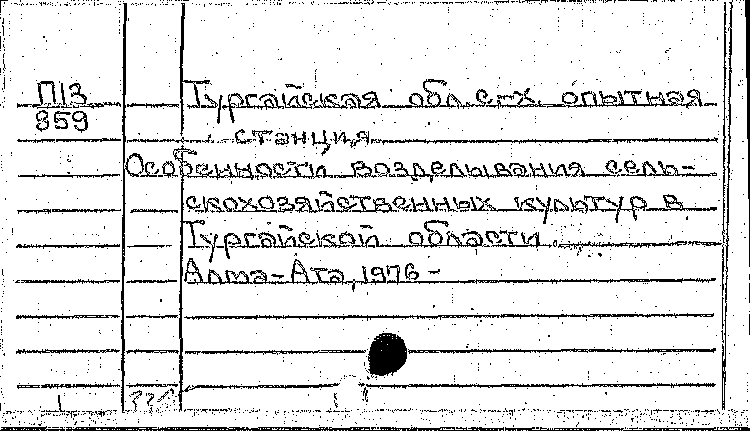 П13
859
Тургайская обл. с-х. опытная
станция
Особенности возделывания сель-
скохозяйственных культур в
Тургайской области.
Алма-Ата, 1976 -